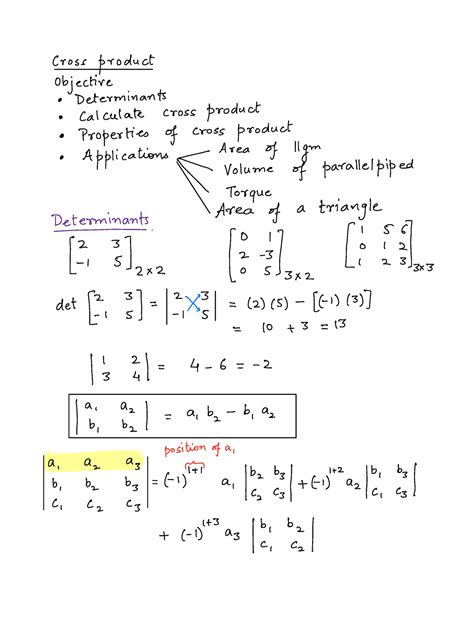 Cross product
Objective
• Determinants
• Calculate cross product
• Properties of cross product
• Applications
Area of llgm
Volume of parallelpiped
Torque
Area of a triangle
Determinants
[2 3; -1 5]2×2 [0 1; 2 -3; 0 5]3×2 [1 5 6; 0 1 2; 1 2 3]3×3
det [2 3; -1 5] = |2 3; -1 5| = (2)(5) - [(-1)(3)]
= 10 + 3 = 13
|1 2; 3 4| = 4 - 6 = -2
|a₁ a₂; b₁ b₂| = a₁ b₂ - b₁ a₂
position of a₁
|a₁ a₂ a₃; b₁ b₂ b₃; c₁ c₂ c₃| = (-1)¹⁺¹ a₁ |b₂ b₃; c₂ c₃| + (-1)¹⁺² a₂ |b₁ b₃; c₁ c₃|
+ (-1)¹⁺³ a₃ |b₁ b₂; c₁ c₂|